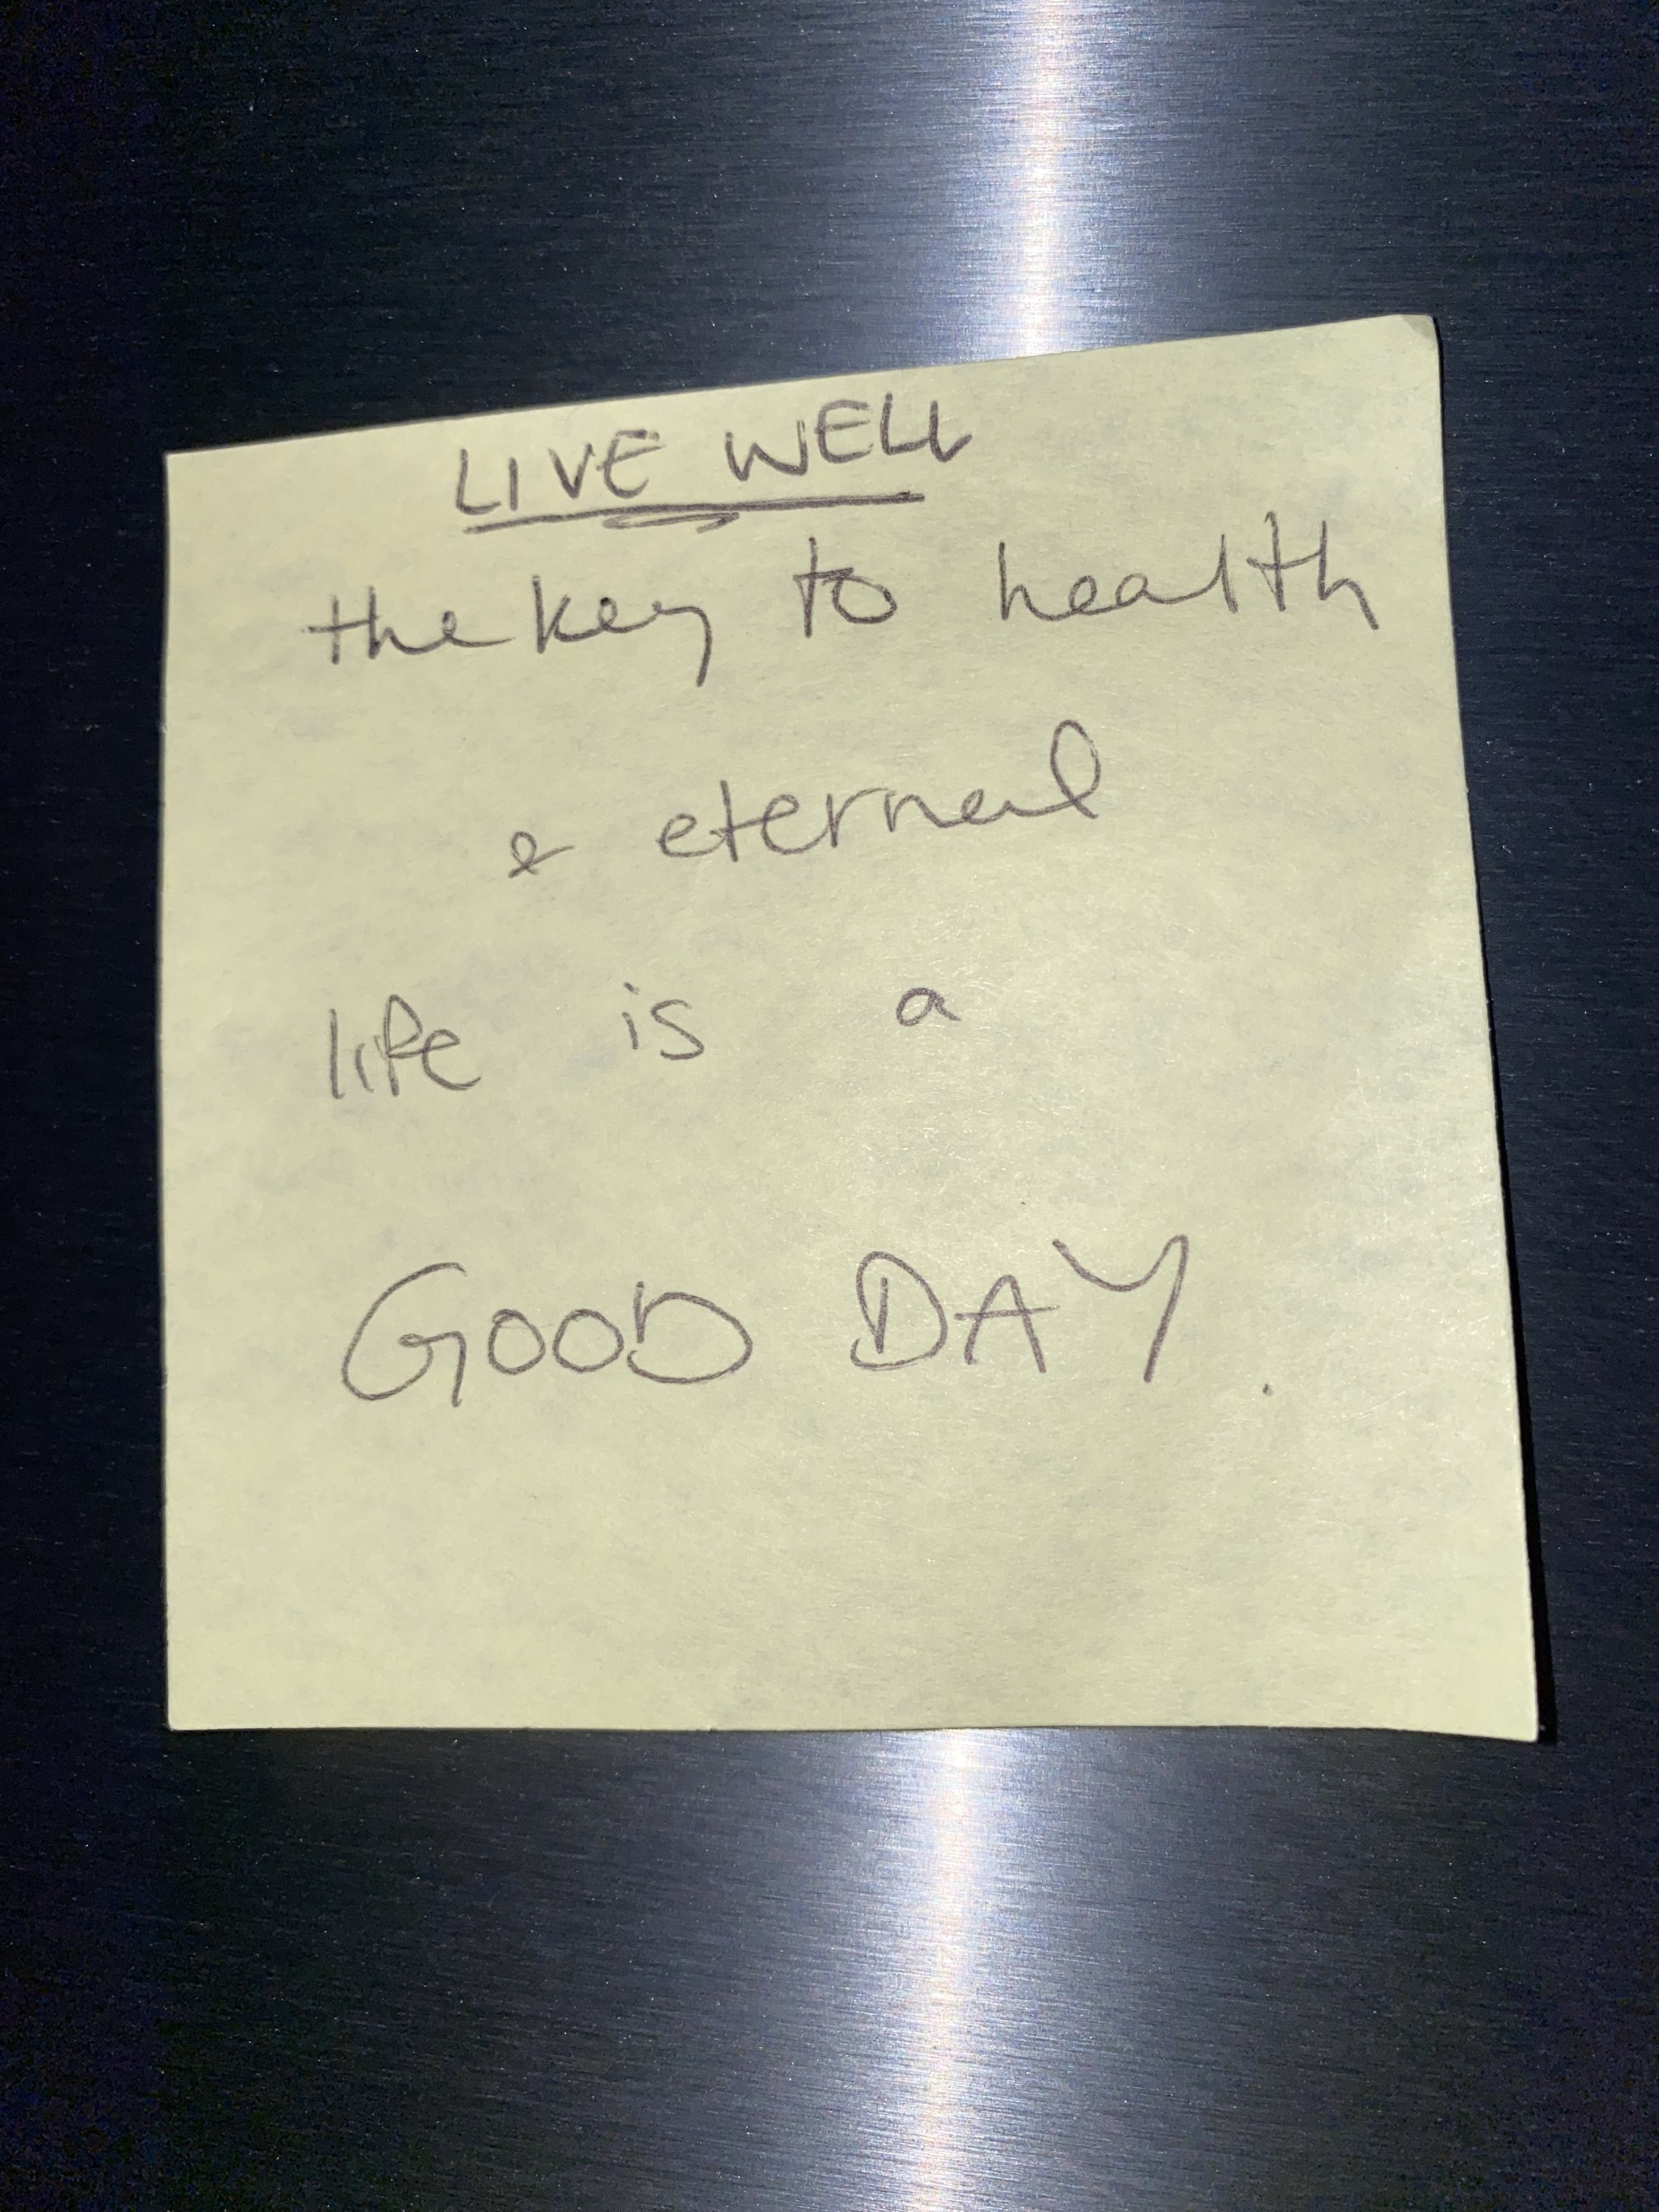 LIVE WELL
the key to health
& eternal
life is a
GOOD DAY.